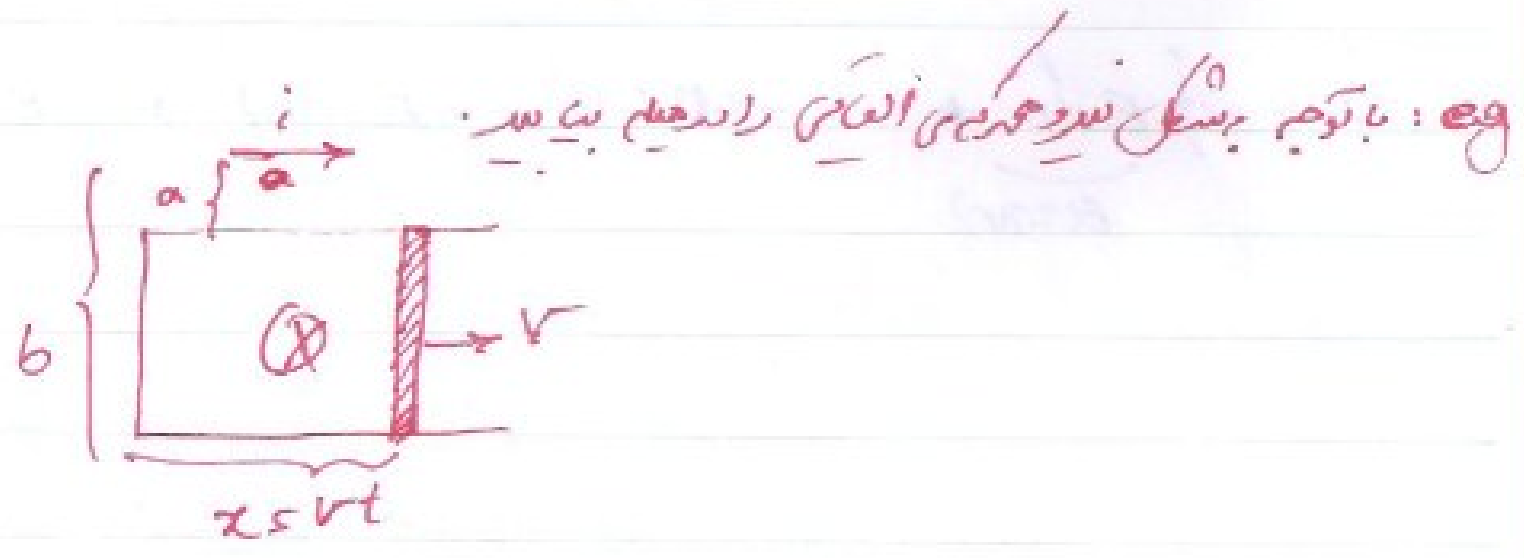 eg : با توجه به شکل نیرو محرکه‌ی القایی را در میله بیابید.
i
a
a
b
v
x = vt